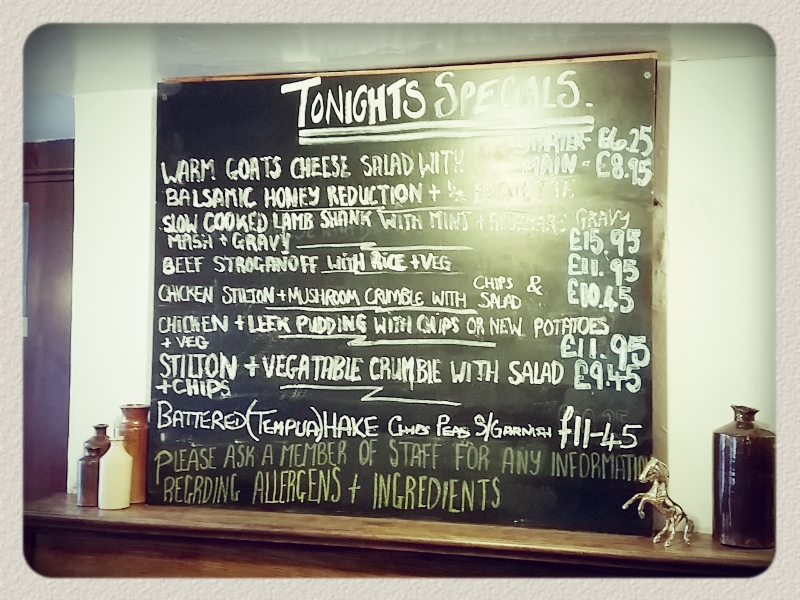 TONIGHTS SPECIALS.
STARTER £6.25
WARM GOATS CHEESE SALAD WITH MAIN - £8.95
BALSAMIC HONEY REDUCTION + ½
SLOW COOKED LAMB SHANK WITH MINT + ROSEMARY GRAVY
MASH + GRAVY £15.95
BEEF STROGANOFF WITH RICE + VEG £11.95
CHICKEN STILTON + MUSHROOM CRUMBLE WITH CHIPS & SALAD £10.45
CHICKEN + LEEK PUDDING WITH CHIPS OR NEW POTATOES
+ VEG £11.95
STILTON + VEGATABLE CRUMBLE WITH SALAD £9.45
+ CHIPS
BATTERED (TEMPUA) HAKE CHIPS PEAS S/GARNISH £11-45
PLEASE ASK A MEMBER OF STAFF FOR ANY INFORMATION
REGRDING ALLERGENS + INGREDIENTS